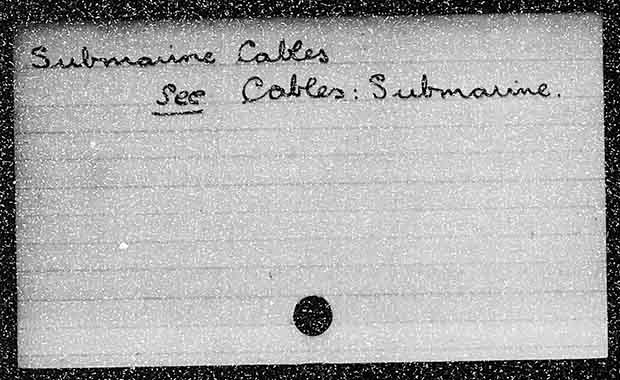 Submarine Cables
See Cables: Submarine.